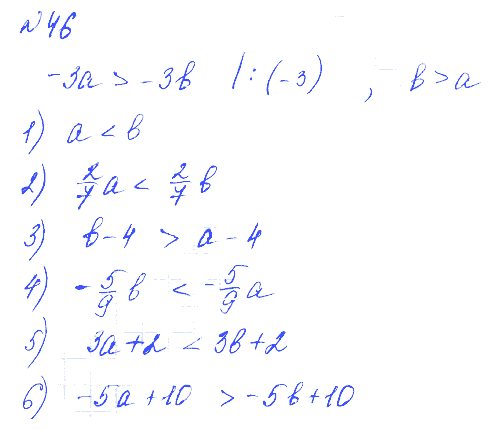 №46
-3a > -3b |:(-3) , b > a
1) a < b
2) 2/7 a < 2/7 b
3) b-4 > a-4
4) -5/9 b < -5/9 a
5) 3a+2 < 3b+2
6) -5a+10 > -5b+10